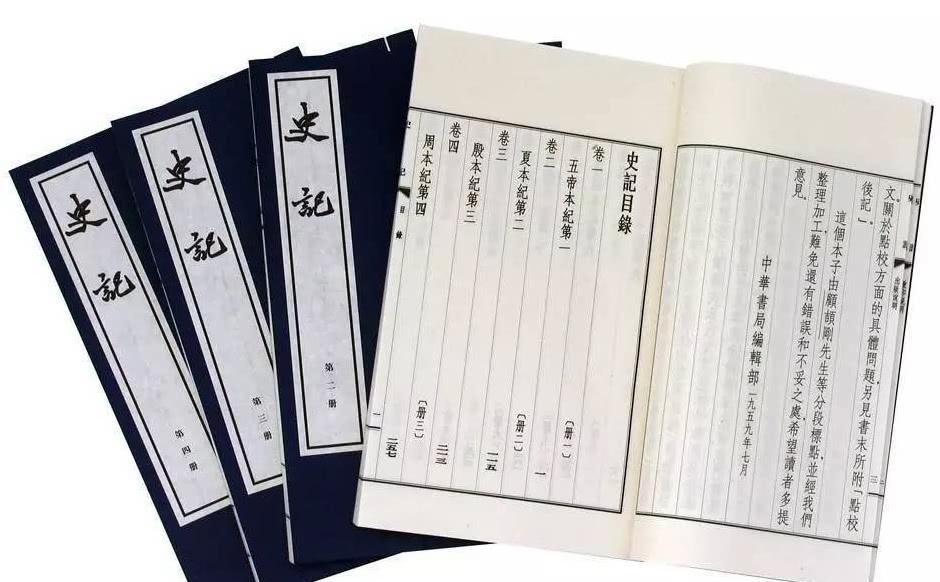 文。關於點校方面的具體問題，另見書末所附「點校
後記」。
這個本子由顧頡剛先生等分段標點，並經我們
整理加工，難免還有錯誤和不妥之處，希望讀者多提
意見。
中華書局編輯部 一九五九年七月
三
史記目錄
卷一
五帝本紀第一 〔册一〕
一
卷二
夏本紀第二 〔册二〕
一二五
卷三
殷本紀第三
二一三
卷四
周本紀第四 〔册三〕
二五七
史記目錄 一
史記
第二册
史記
第三册
史記
第四册